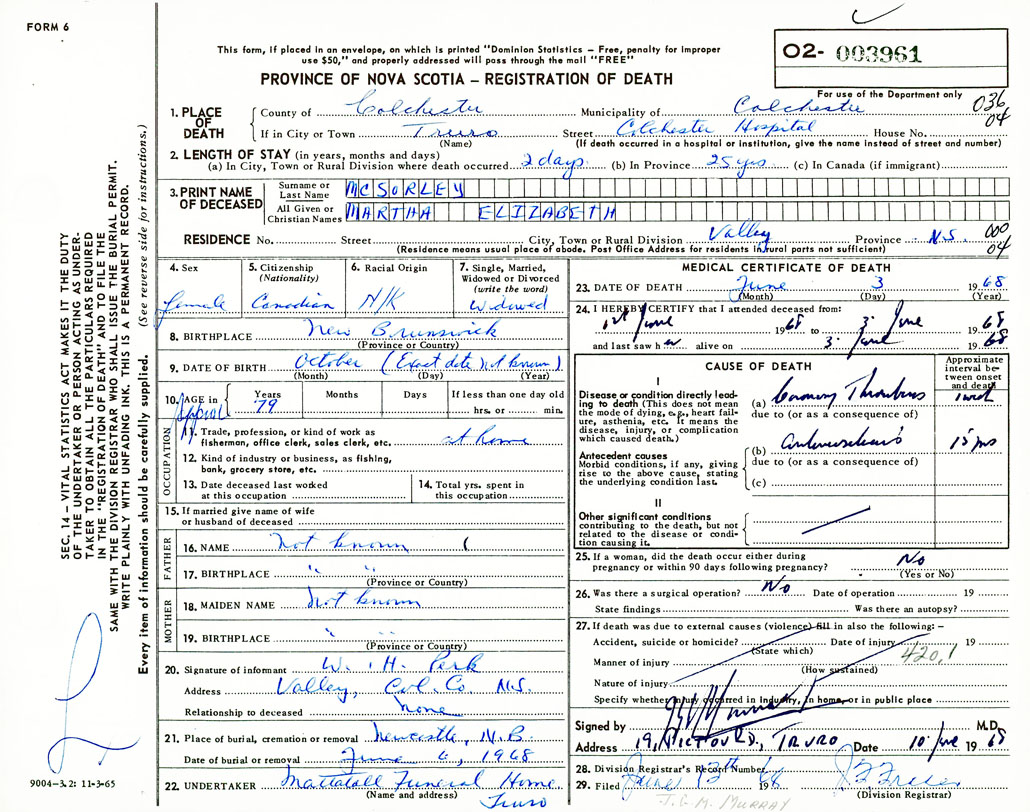 FORM 6
This form, if placed in an envelope, on which is printed "Dominion Statistics – Free, penalty for improper
use $50," and properly addressed will pass through the mail "FREE"
PROVINCE OF NOVA SCOTIA – REGISTRATION OF DEATH
O2- 003961
For use of the Department only
036
04
1. PLACE OF DEATH
County of Colchester Municipality of Colchester
If in City or Town Truro Street Colchester Hospital House No.
(Name) (If death occurred in a hospital or institution, give the name instead of street and number)
2. LENGTH OF STAY (in years, months and days)
(a) In City, Town or Rural Division where death occurred 2 days (b) In Province 25 yrs (c) In Canada (if immigrant)
3. PRINT NAME OF DECEASED
Surname or Last Name MCSORLEY
All Given or Christian Names MARTHA ELIZABETH
RESIDENCE No. Street City, Town or Rural Division Valley Province N.S. 000
(Residence means usual place of abode. Post Office Address for residents in rural parts not sufficient) 04
4. Sex
female
5. Citizenship
(Nationality)
Canadian
6. Racial Origin
N/K
7. Single, Married,
Widowed or Divorced
(write the word)
Widowed
8. BIRTHPLACE New Brunswick
(Province or Country)
9. DATE OF BIRTH October (Exact date not known)
(Month) (Day) (Year)
10. AGE in Years Months Days If less than one day old
79 hrs. or min.
OCCUPATION
11. Trade, profession or kind of work as
fisherman, office clerk, sales clerk, etc. at home
12. Kind of industry or business, as fishing,
bank, grocery store, etc.
13. Date deceased last worked
at this occupation
14. Total yrs. spent in
this occupation
15. If married give name of wife
or husband of deceased
FATHER
16. NAME Not known (
17. BIRTHPLACE " "
(Province or Country)
MOTHER
18. MAIDEN NAME Not known
19. BIRTHPLACE " "
(Province or Country)
20. Signature of informant W. H. Perk
Address Valley, Col. Co N.S.
Relationship to deceased None
21. Place of burial, cremation or removal Newcastle, N.B
Date of burial or removal June 6, 1968
22. UNDERTAKER Mattatall Funeral Home
(Name and address) Truro
MEDICAL CERTIFICATE OF DEATH
23. DATE OF DEATH June 3 1968
(Month) (Day) (Year)
24. I HEREBY CERTIFY that I attended deceased from:
1st June 1968 to 3 June 1968
and last saw her alive on 3 June 1968
CAUSE OF DEATH
Approximate
interval be-
tween onset
and death
I
Disease or condition directly lead-
ing to death (This does not mean
the mode of dying, e.g., heart fail-
ure, asthenia, etc. It means the
disease, injury, or complication
which caused death.)
(a) Coronary Thrombosis
due to (or as a consequence of)
Antecedent causes
Morbid conditions, if any, giving
rise to the above cause, stating
the underlying condition last.
(b) 15 yrs
due to (or as a consequence of)
(c)
II
Other significant conditions
contributing to the death, but not
related to the disease or condi-
tion causing it.
25. If a woman, did the death occur either during
pregnancy or within 90 days following pregnancy? No
(Yes or No)
26. Was there a surgical operation? No Date of operation 19
State findings Was there an autopsy?
27. If death was due to external causes (violence) fill in also the following: –
Accident, suicide or homicide? Date of injury 19
(State which)
420.1
Manner of injury
(How sustained)
Nature of injury
Specify whether injury occurred in industry, in home, or in public place
Signed by M.D.
Address 19, RD., TRURO Date 10 June 1968
28. Division Registrar's Record Number
29. Filed June 1968
(Division Registrar)
J. G. M. MURRAY
SEC. 14 – VITAL STATISTICS ACT MAKES IT THE DUTY
OF THE UNDERTAKER OR PERSON ACTING AS UNDER-
TAKER TO OBTAIN ALL THE PARTICULARS REQUIRED
IN THE "REGISTRATION OF DEATH" AND TO FILE THE
SAME WITH THE DIVISION REGISTRAR WHO SHALL ISSUE THE BURIAL PERMIT.
WRITE PLAINLY WITH UNFADING INK. THIS IS A PERMANENT RECORD.
Every item of information should be carefully supplied. (See reverse side for instructions.)
9004-3.2: 11-3-65